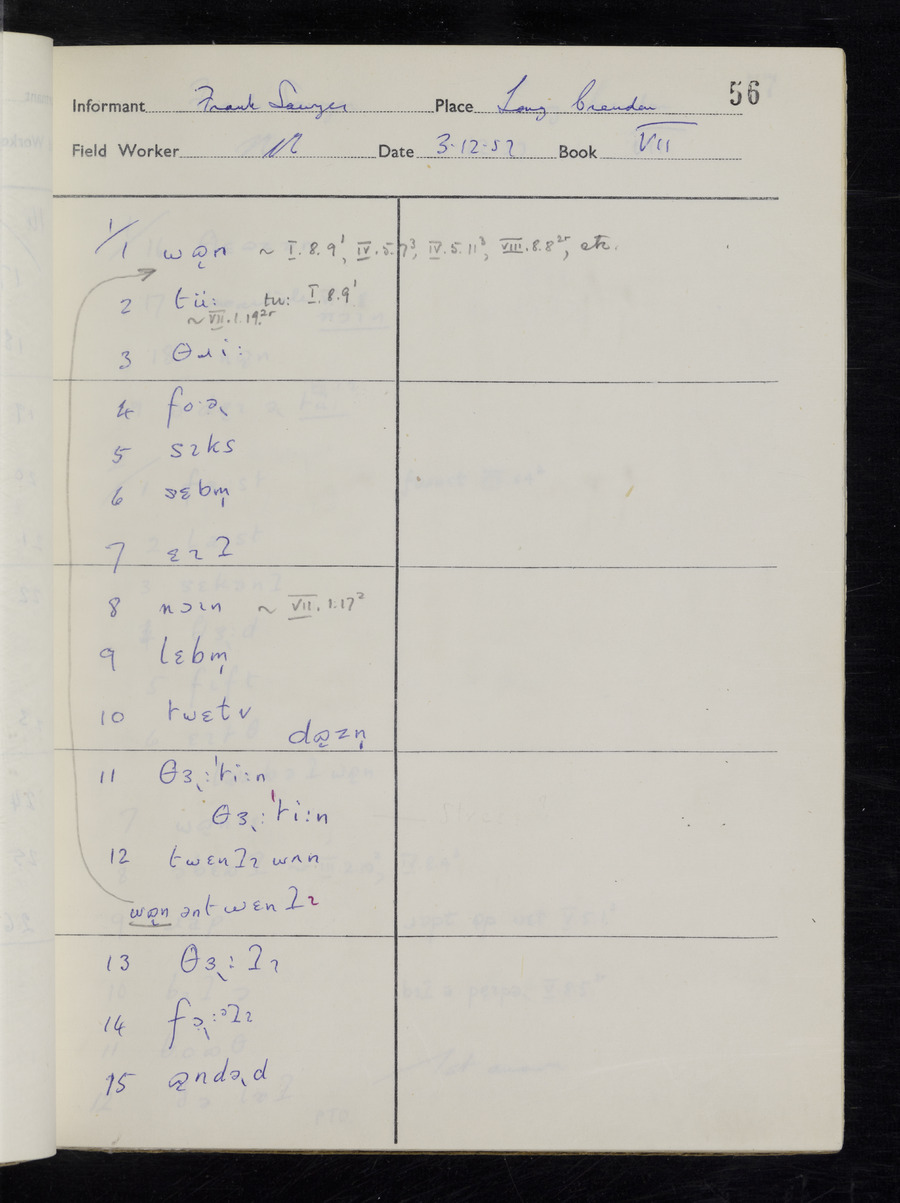 56
Informant Frank Sawyer Place Long Crendon
Field Worker Date 3-12-52 Book VII
1/
1 wə̣n ~ I.8.9¹, IV.5.7³, IV.5.11³, VIII.8.8²ʳ, etc.
2 tüː tuː I.8.9¹
~ VII.1.19²ʳ
3 θɹiː
4
5 sɪks
6 sɛbm̩
7
8 nɔɪn ~ VII.1.17²
9 lɛbm̩
10 twɛɫv
də̣zn̩
11 θɜ˞ːˈtiːn
θɜ˞ːˈtiːn
12 twɛnʔɪ wʌn
wə̣n ən twɛnʔɪ
13 θɜ˞ːʔɪ
14
15 ə̣ndə˞d